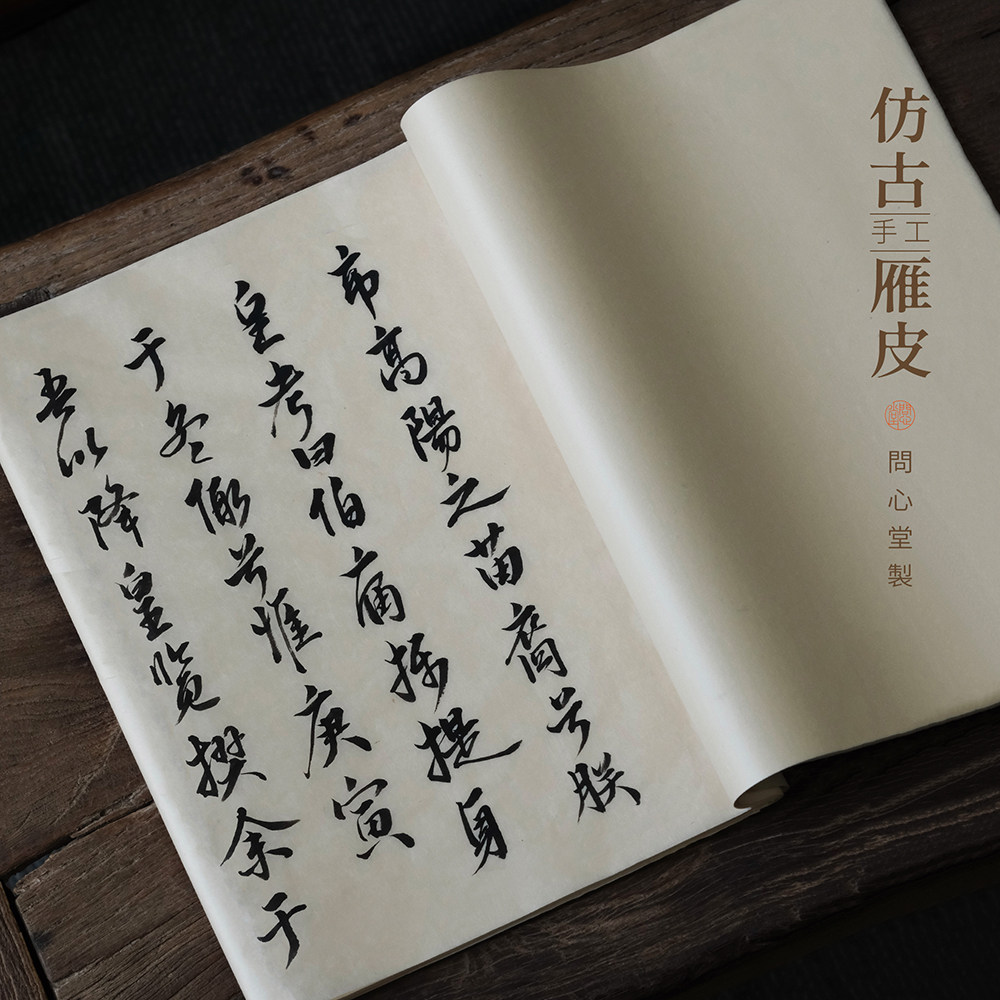 仿古
手工
雁皮
問心堂製
帝高陽之苗裔兮朕
皇考曰伯庸攝提貞
于孟陬兮惟庚寅
吾以降皇覽揆余于